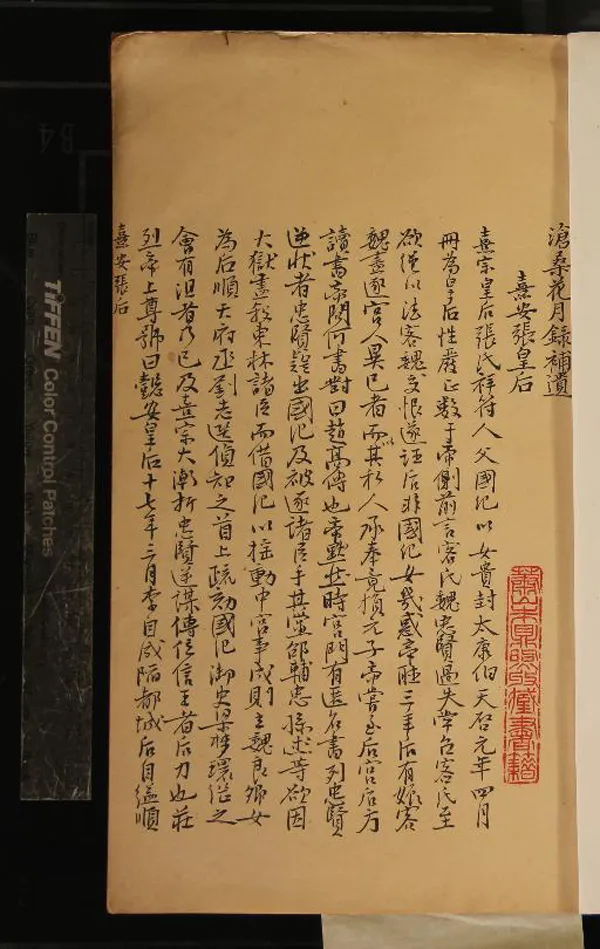 滄桑花月錄補遺
熹安張皇后
熹宗皇后張氏祥符人父國紀以女貴封太康伯天啓元年四月
冊為皇后性嚴正数于帝側前言客氏魏忠賢過失常召客氏至
欲繩以法客魏交恨遂誣后非國紀女幾惑帝聴三年后有娠客
魏盡逐宮人異己者而以其私人承奉竟損元子帝嘗至后宮后方
讀書帝問何書對曰趙高傳也帝默然時宮門有匿名書列忠賢
逆狀者忠賢疑出國紀及被逐諸臣手其黨邵輔忠孫杰等欲因
大獄盡殺東林諸臣而借國紀以搖動中宮事成則立魏良卿女
為后順天府丞劉志選偵知之首上疏劾國紀御史梁夢環從之
會有沮者乃已及熹宗大漸折忠賢逆謀傳位信王者后力也莊
烈帝上尊號曰懿安皇后十七年三月李自成陷都城后自縊順
熹安張后
TIFFEN Color Control Patches
B4